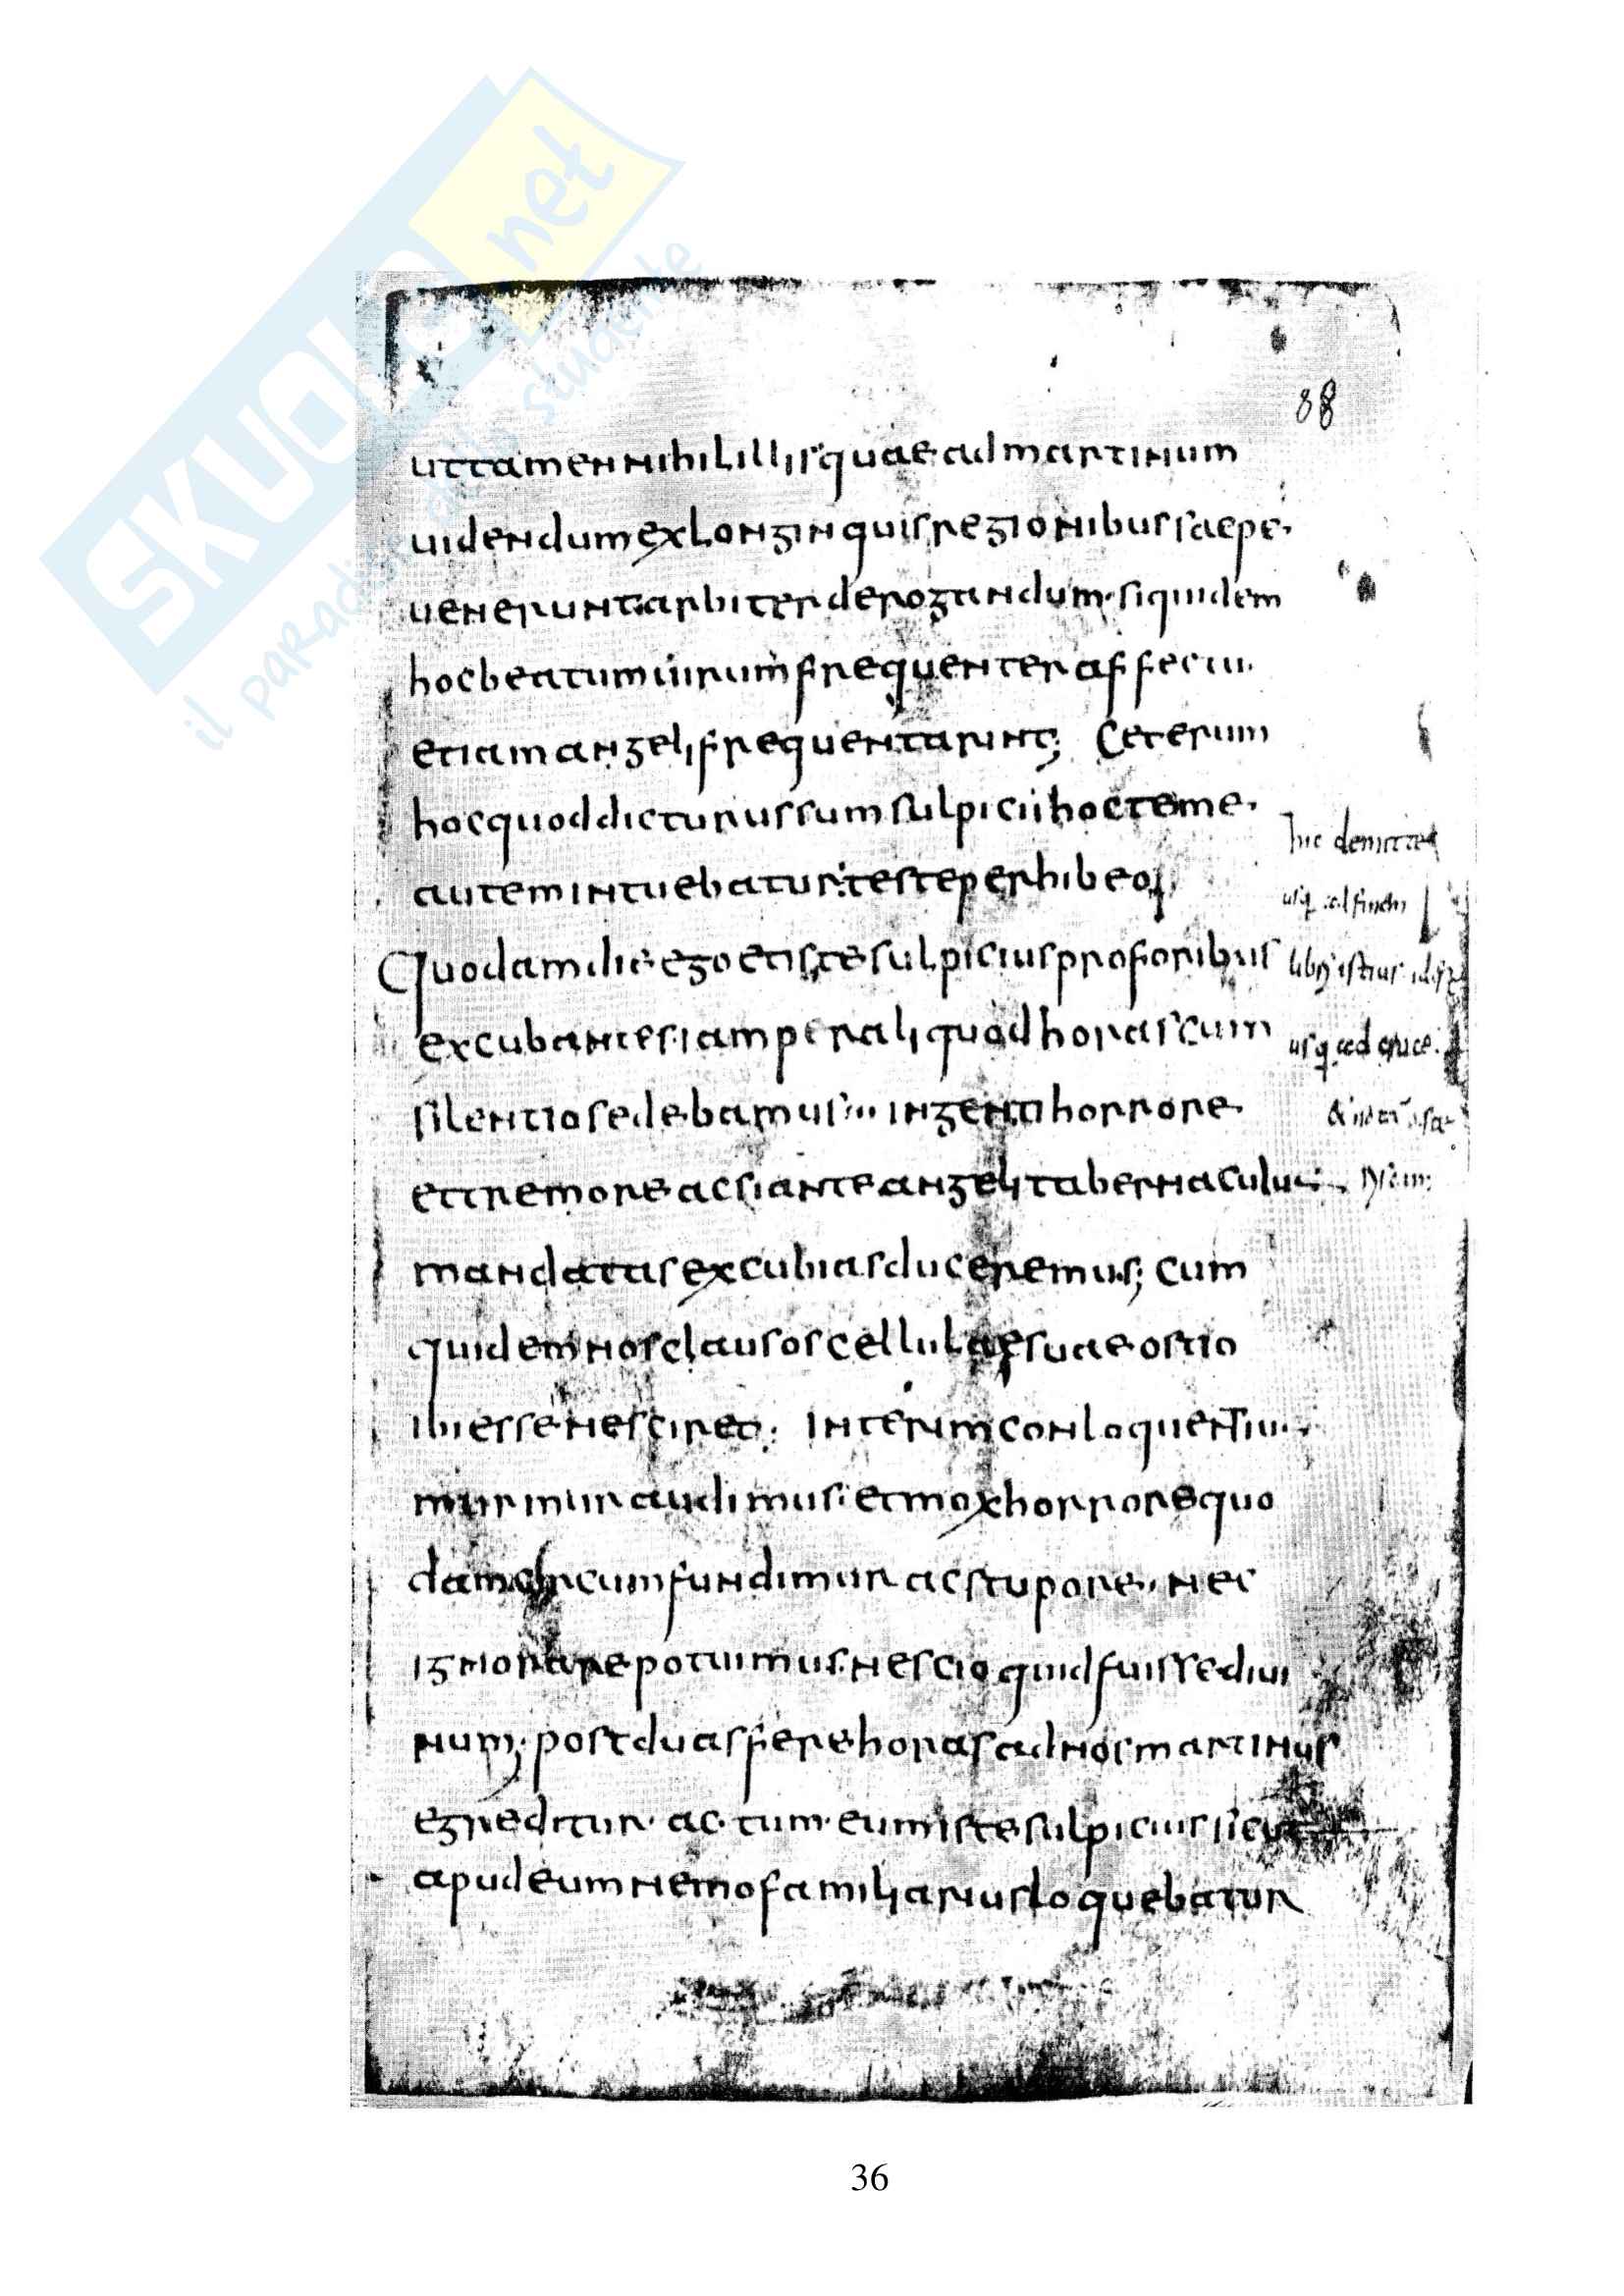 SKUOLA.net
il paradiso dello studente
88
uttamen nihil illis quae ad martinum
uidendum ex longinquis regionibus saepe·
uenerunt arbiter derogandum· siquidem
hoc beatum uirum frequenter affectu·
etiam angeli frequentarint; Ceterum
hoc quod dicturus sum sulpicii hoc teme·
autem intuebatur· teste perhibeo;
Quodam die ego et iste sulpicius pro foribus
excubantes· iam per aliquod horas cum
silentio sedebamus· ingenti horrore·
et tremore ac si ante angeli tabernaculu
mandatas excubias duceremus; cum
quidem nos clausos cellulae suae ostio
ibi esse nesciret· Interim conloquentiu·
murmur audimus· et mox horrore quo
dam circumfundimur ac stupore· nec
ignorare potuimus· nescio quid fuisse diui
num; post duas fere horas ad nos martinus
egreditur· ac tum· eum iste sulpicius sicut
apud eum nemo familiarius loquebatur
hic demitte
usq ad finem
libri istius
usq ad cruce
36